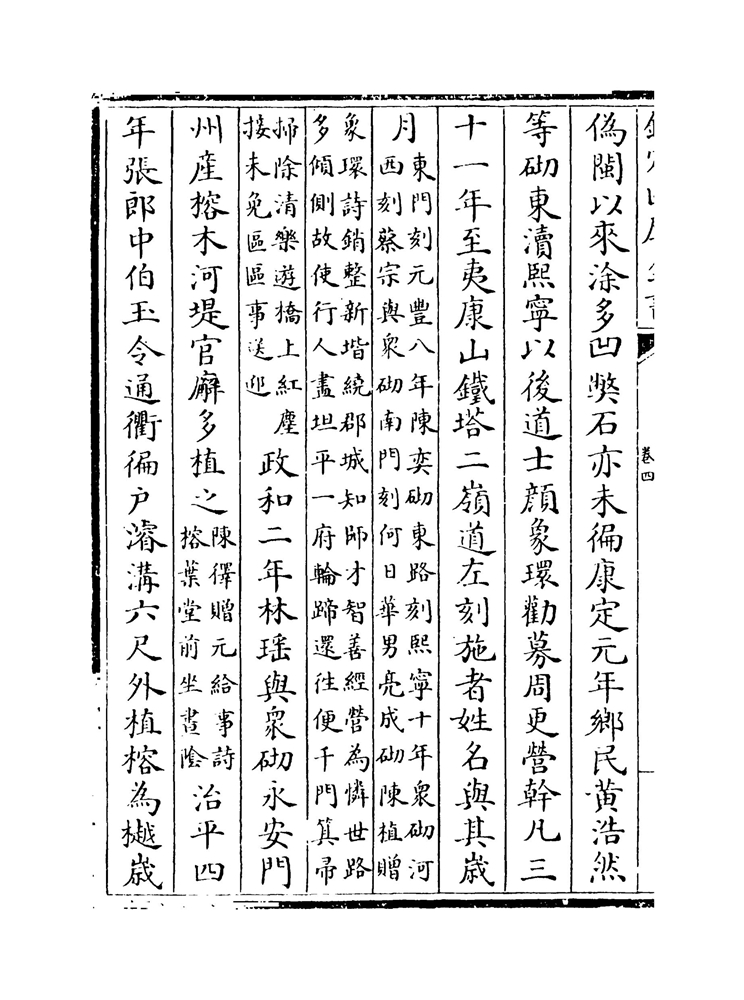 欽定四庫全書
卷四
偽閩以來涂多凹獘石亦未徧康定元年鄉民黄浩然
等砌東瀆熙寧以後道士顔象環勸募周更營幹凡三
十一年至夷康山鐵塔二嶺道左刻施者姓名與其歳
月
東門刻元豐八年陳奕砌東路刻熙寧十年衆砌河
西刻蔡宗與衆砌南門刻何日華男亮成砌陳植贈
象環詩銷整新堦繞郡城知師才智善經營為憐世路
多傾側故使行人盡坦平一府輪蹄還往便千門箕帚
掃除清樂遊橋上紅塵
接未免區區事送迎
政和二年林瑶與衆砌永安門
州産榕木河堤官廨多植之
陳贈元給事詩
榕葉堂前坐晝陰
治平四
年張郎中伯玉令通衢徧户濬溝六尺外植榕為樾歳